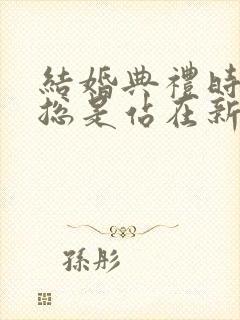 結婚典禮時
總是佔在新
孫彤